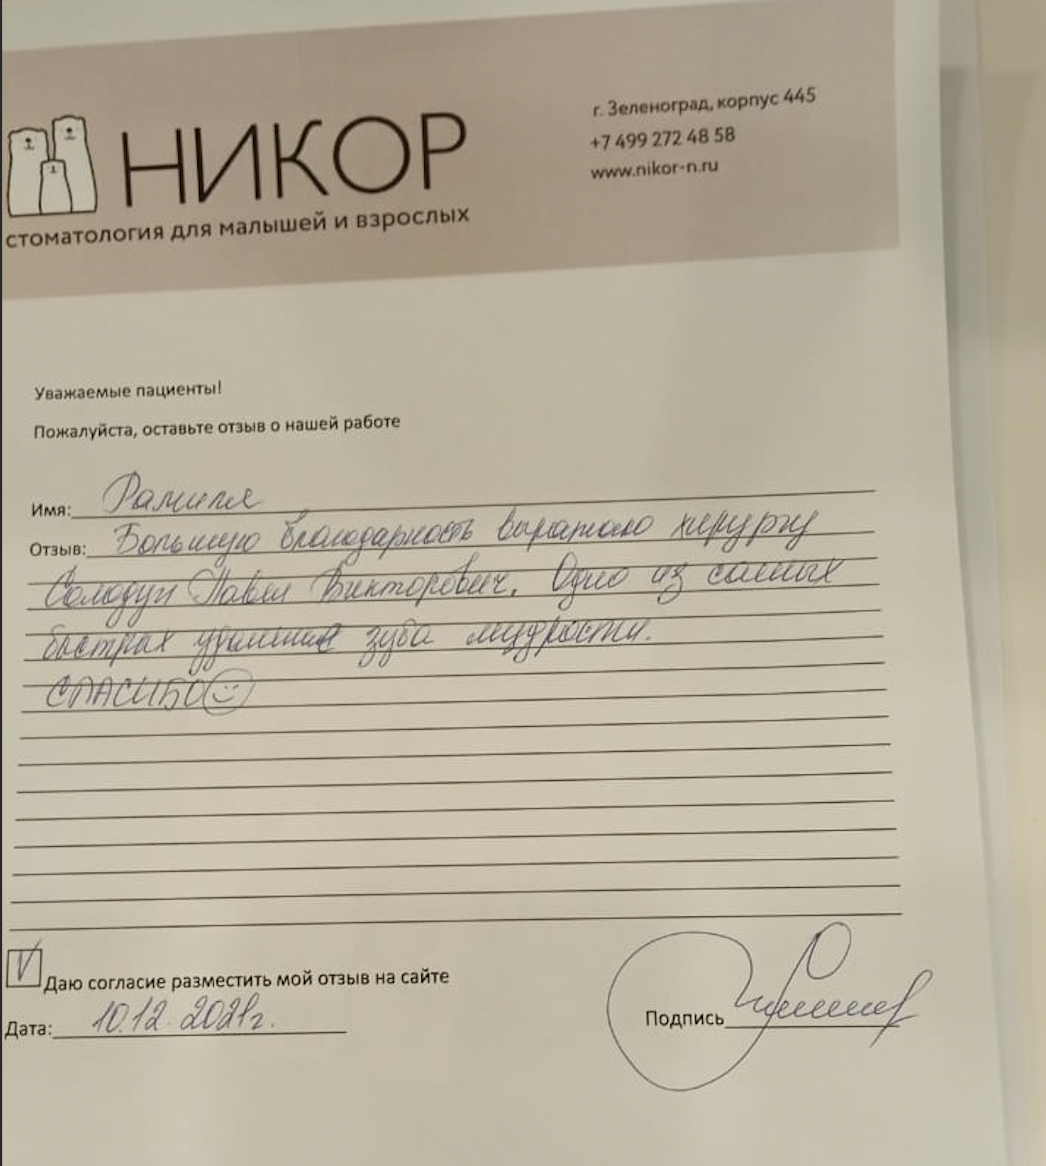 НИКОР
стоматология для малышей и взрослых
г. Зеленоград, корпус 445
+7 499 272 48 58
www.nikor-n.ru
Уважаемые пациенты!
Пожалуйста, оставьте отзыв о нашей работе
Имя: Рамиля
Отзыв: Большую благодарность выражаю хирургу
Солодун Павел Викторович. Одно из самых
быстрых удаление зуба мудрости.
СПАСИБО☺
V Даю согласие разместить мой отзыв на сайте
Дата: 10.12.2021г.
Подпись